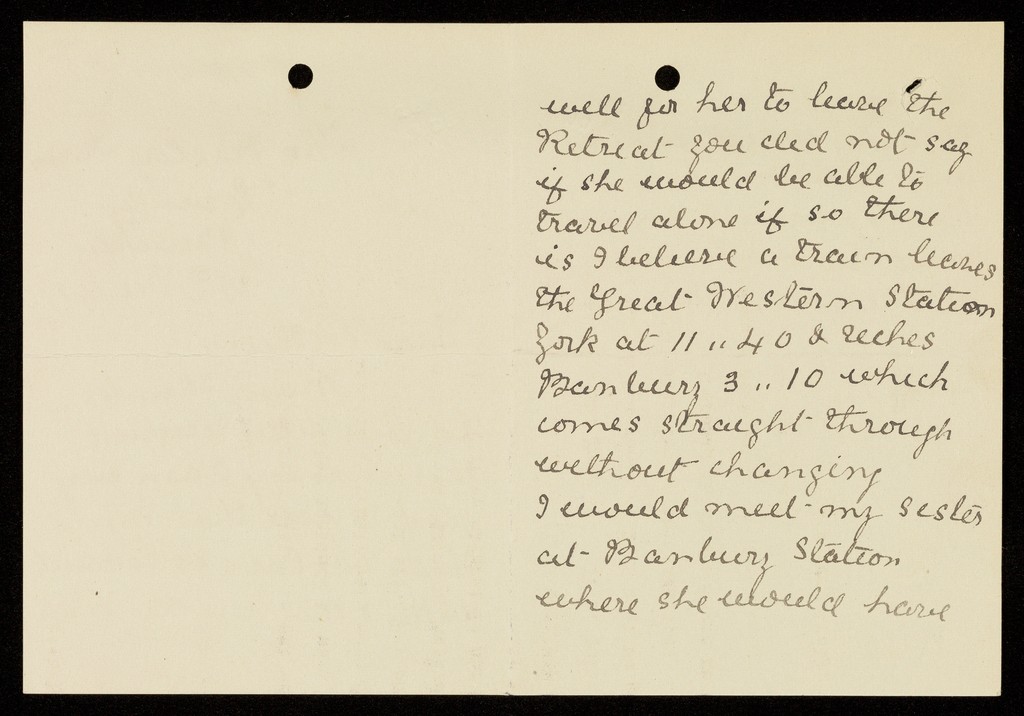 well for her to leave the
Retreat you did not say
if she would be able to
travel alone if so there
is I believe a train leaves
the Great Western Station
York at 11 .. 40 & reches
Banbury 3 .. 10 which
comes straught through
without changing
I would meet my sister
at Banbury Station
where she would have